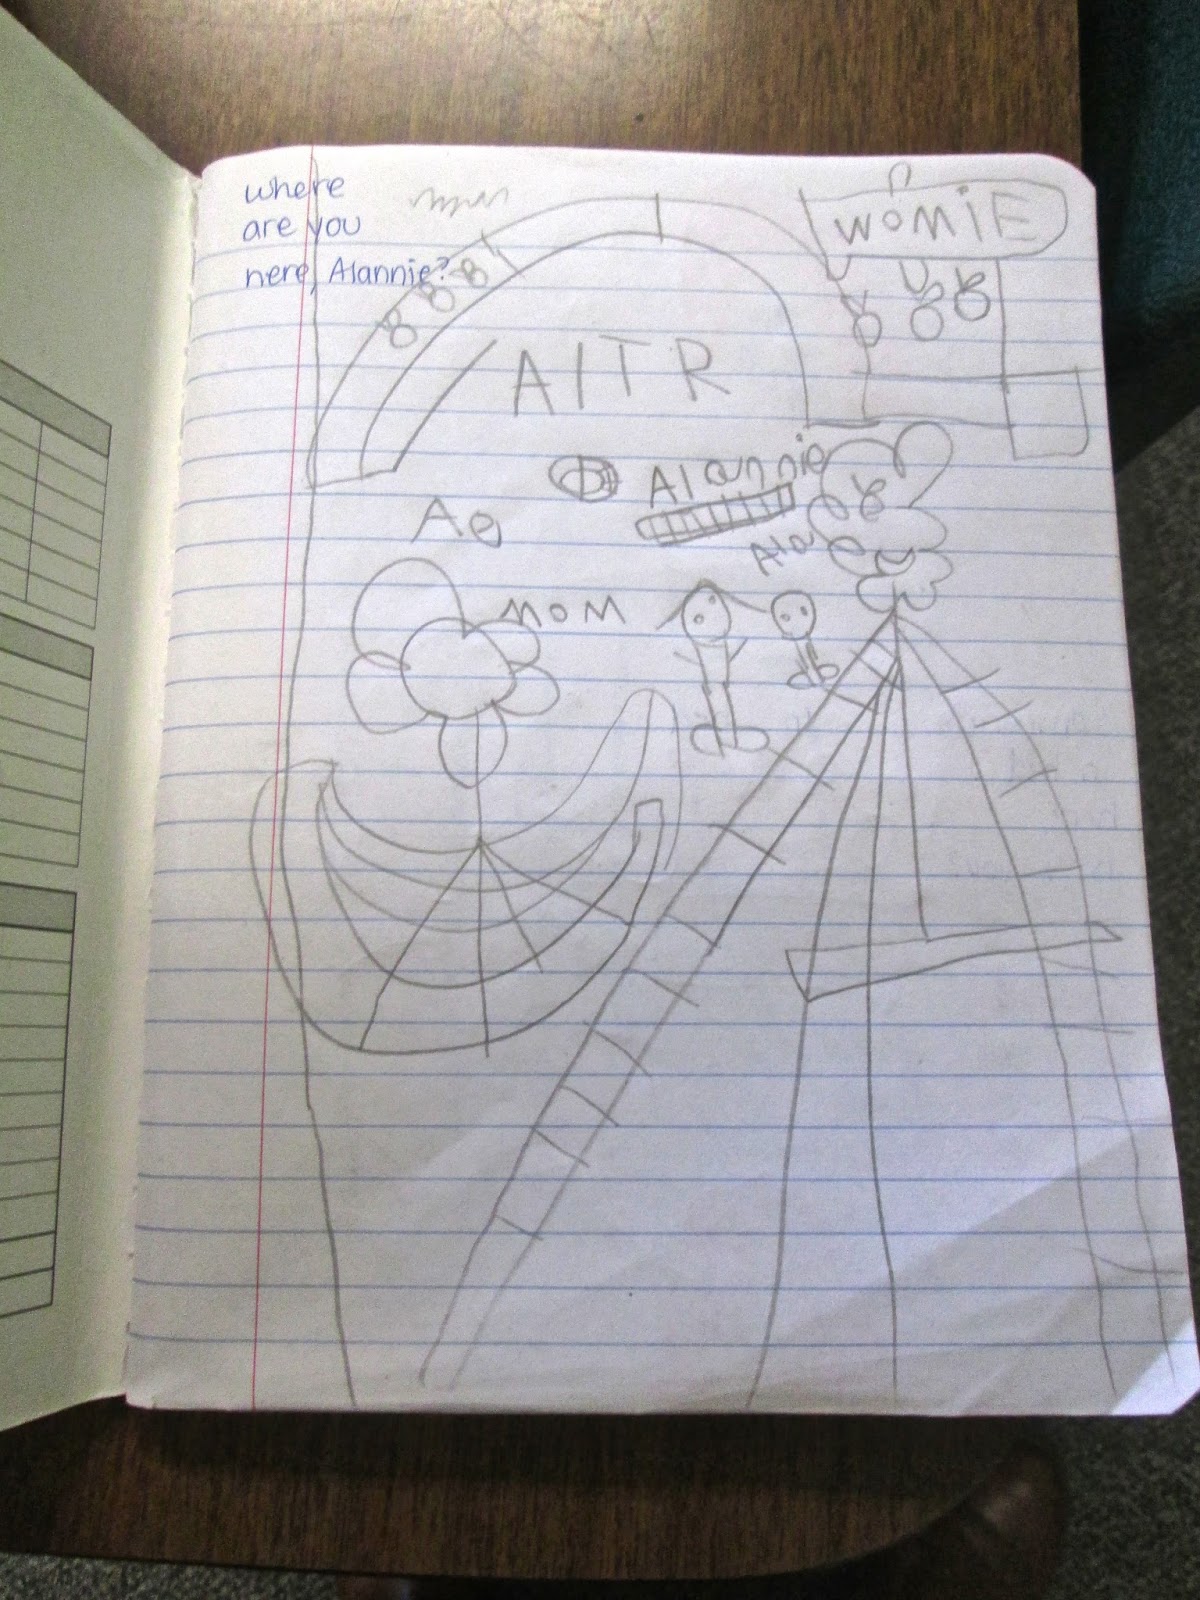 where
are you
here, Alannie?
WOMiE
AITR
Alannie
Ae
Ala
MOM